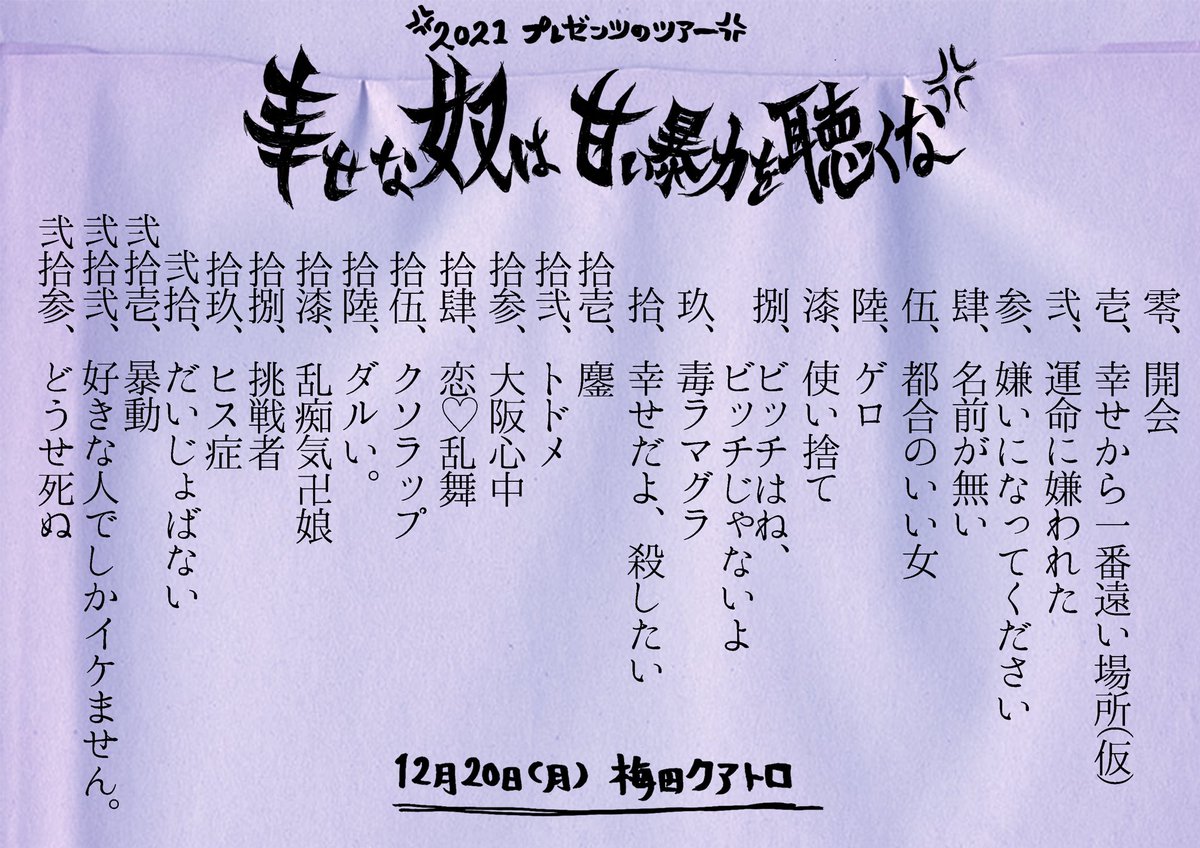 2021 プレゼンツのツアー
幸せな奴は甘い暴力を聴くな
零、開会
壱、幸せから一番遠い場所(仮)
弐、運命に嫌われた
参、嫌いになってください
肆、名前が無い
伍、都合のいい女
陸、ゲロ
漆、使い捨て
捌、ビッチはね、
ビッチじゃないよ
玖、毒ラマグラ
拾、幸せだよ、殺したい
拾壱、鏖
拾弐、トドメ
拾参、大阪心中
拾肆、恋♡乱舞
拾伍、クソラップ
拾陸、ダルい。
拾漆、乱痴気卍娘
拾捌、挑戦者
拾玖、ヒス症
弐拾、だいじょばない
弐拾壱、暴動
弐拾弐、好きな人でしかイケません。
弐拾参、どうせ死ぬ
12月20日(月) 梅田クアトロ